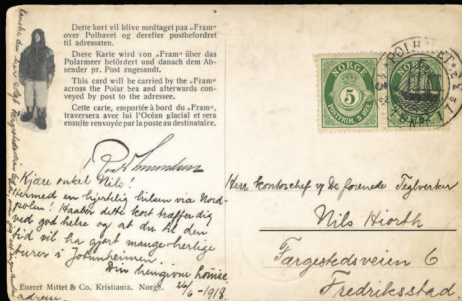 Dette kort vil blive medtaget paa „Fram“
over Polhavet og derefter postbefordret
til adressaten.
Diese Karte wird von „Fram“ über das
Polarmeer befördert und danach dem Ab-
sender pr. Post zugesandt.
This card will be carried by the „Fram“
across the Polar Sea and afterwards con-
veyed by post to the addressee.
Cette carte, emportée à bord du „Fram“,
traversera avec lui l'Océan glacial et sera
ensuite renvoyée par la poste au destinataire.
NORGE
5
NORGE
Kjære onkel Nils!
Hermed en hjertelig hilsen via Nord-
polen! Haaber dette kort træffer dig
ved god helse og at du til den
tid vil ha gjort mange herlige
turer i Jotunheimen.
Din hengivne
26/6-1918
Herr kontorchef ved De forenede Teglverker
Nils Hiorth
Færgestedsveien 6
Fredriksstad
Eneret Mittet & Co. Kristiania. Norge.